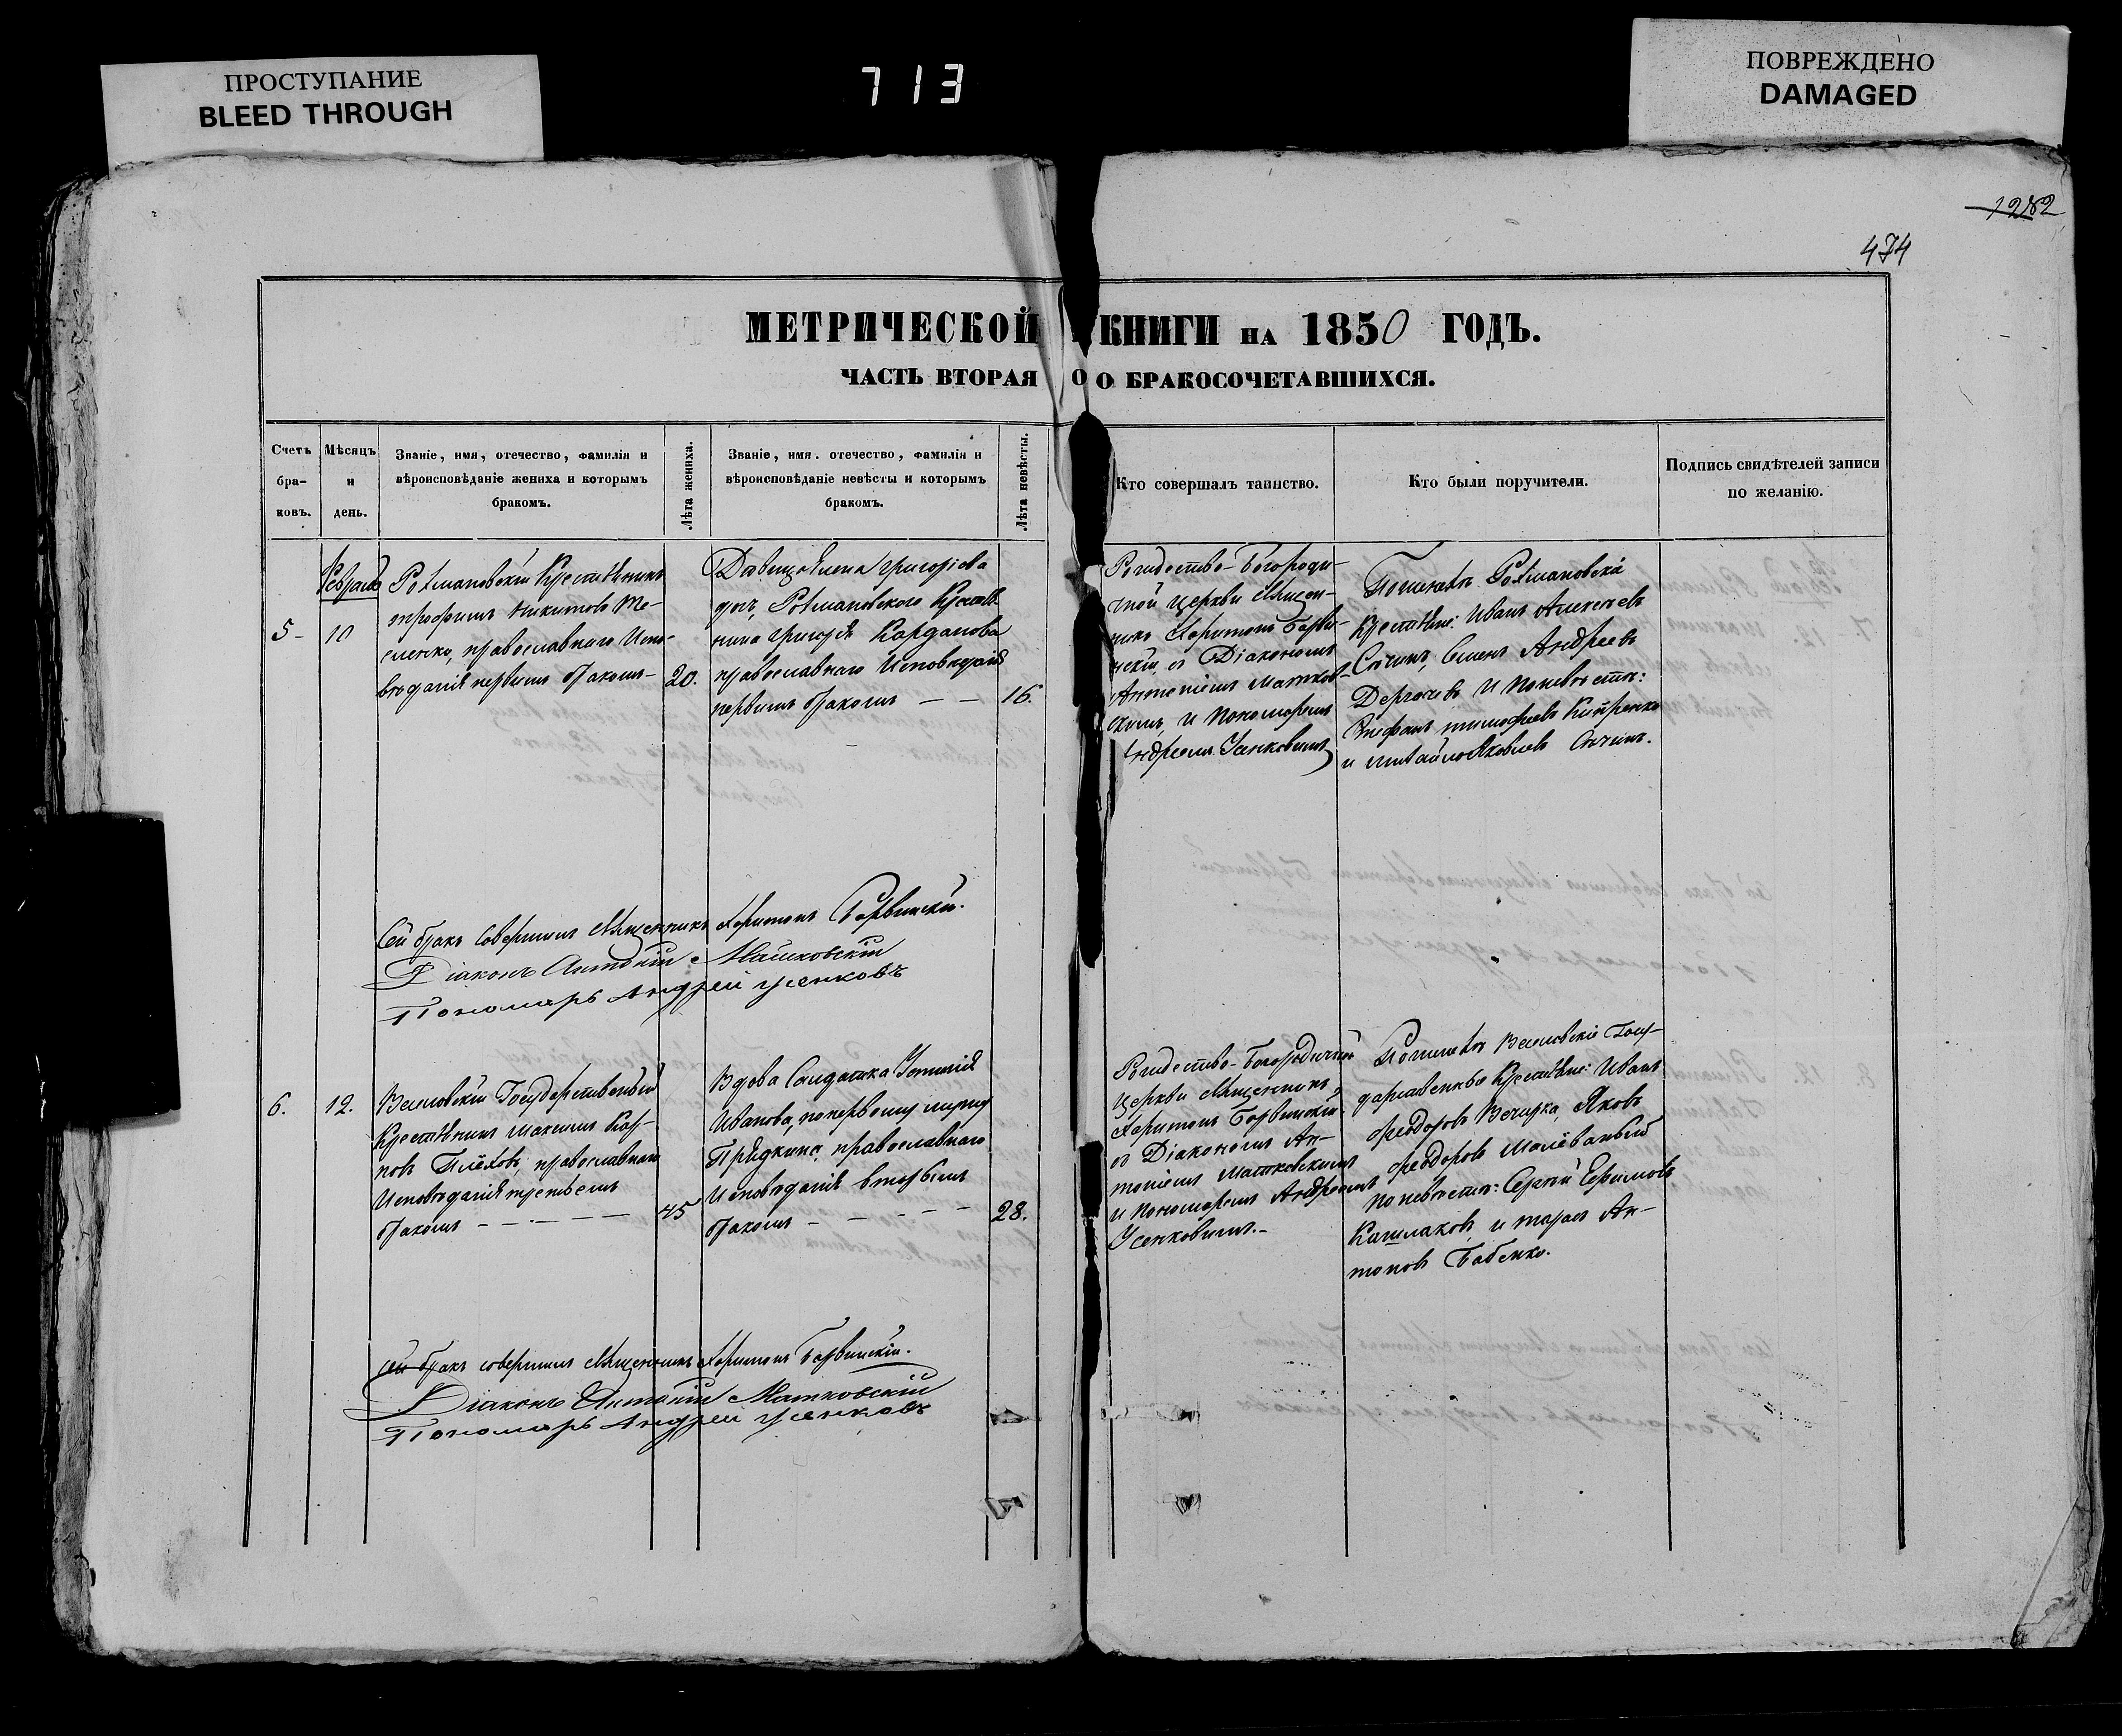 ПРОСТУПАНИЕ
BLEED THROUGH
713
ПОВРЕЖДЕНО
DAMAGED
1282
474
МЕТРИЧЕСКОЙ КНИГИ НА 1850 ГОДЪ.
ЧАСТЬ ВТОРАЯ О О БРАКОСОЧЕТАВШИХСЯ.
Счетъ
бра-
ковъ.
Мѣсяцъ
и
день.
Званіе, имя, отечество, фамилія и
вѣроисповѣданіе жениха и которымъ
бракомъ.
Лѣта жениха.
Званіе, имя. отечество, фамилія и
вѣроисповѣданіе невѣсты и которымъ
бракомъ.
Лѣта невѣсты.
Кто совершалъ таинство.
Кто были поручители.
Подпись свидѣтелей записи
по желанію.
5-
Февраля
10
Крестьянинъ
трофимъ Никитовъ Те-
сленко, православнаго Испо-
вѣданія первымъ бракомъ-
20.
Григоріева
дочь, Крестья
нина Григорія Карданова
православнаго Исповѣданія
первымъ бракомъ - -
16.
Рождество-Богороди-
чной церкви Священ-
никъ Харитонъ Барви-
нскій съ Діакономъ
Антоніемъ Матков-
скимъ, и Пономаремъ
Андреемъ Усенковымъ
По женихѣ
Крестьяне: Иванъ Алексѣевъ
Сычинъ, Семенъ Андреевъ
Дергачовъ И по невѣстѣ:
тимофеевъ
и михайло Яковлевъ Сычинъ.
Сей бракъ Совершилъ Священникъ Харитонъ Барвинскій.
Діаконъ Антоній Матковскій
Пономарь Андрей Усенковъ
6.
12.
Государственный
Крестьянинъ Максимъ Кар-
повъ православнаго
Исповѣданія третьемъ
бракомъ - - - - -
45
Вдова Солдатка
Иванова, по первому мужу
православнаго
Исповѣданія вторымъ
бракомъ - - - - -
28.
Рождество-Богородичной
церкви Священникъ
Харитонъ Барвинскій
съ Діакономъ Ан-
тоніемъ Матковскимъ
и Пономаремъ Андреемъ
Усенковымъ.-
По женихѣ Госу-
дарственные Крестьяне: Иванъ
Феодоровъ Яковъ
Феодоровъ Малёваный
по невѣстѣ: Сергѣй Ефимовъ
Кашлаковъ, и тарасъ Ан-
тоновъ Бабенко.
Сей бракъ совершилъ Священникъ Харитонъ Барвинскій.
Діаконъ Антоній Матковскій
Пономарь Андрей Усенковъ